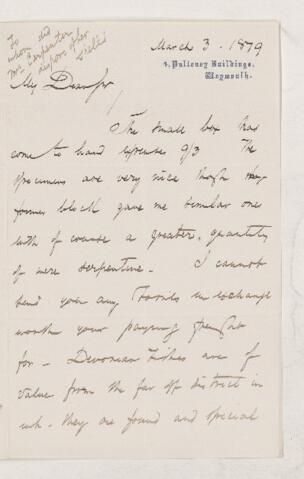 To
whom did
Mr Carpenter
dispose of her
shells
March 3. 1879
4, Pulteney Buildings,
Weymouth.
My Dear Sir
The small box has
come to hand expenses 9/3 The
specimens are very nice though the
former block gave me similar one
with of course a greater quantity
of mere serpentine - I cannot
send you any fossils in exchange
worth your paying freight
for - Devonian Fishes are of
value from the far off district in
wh. they are found and special